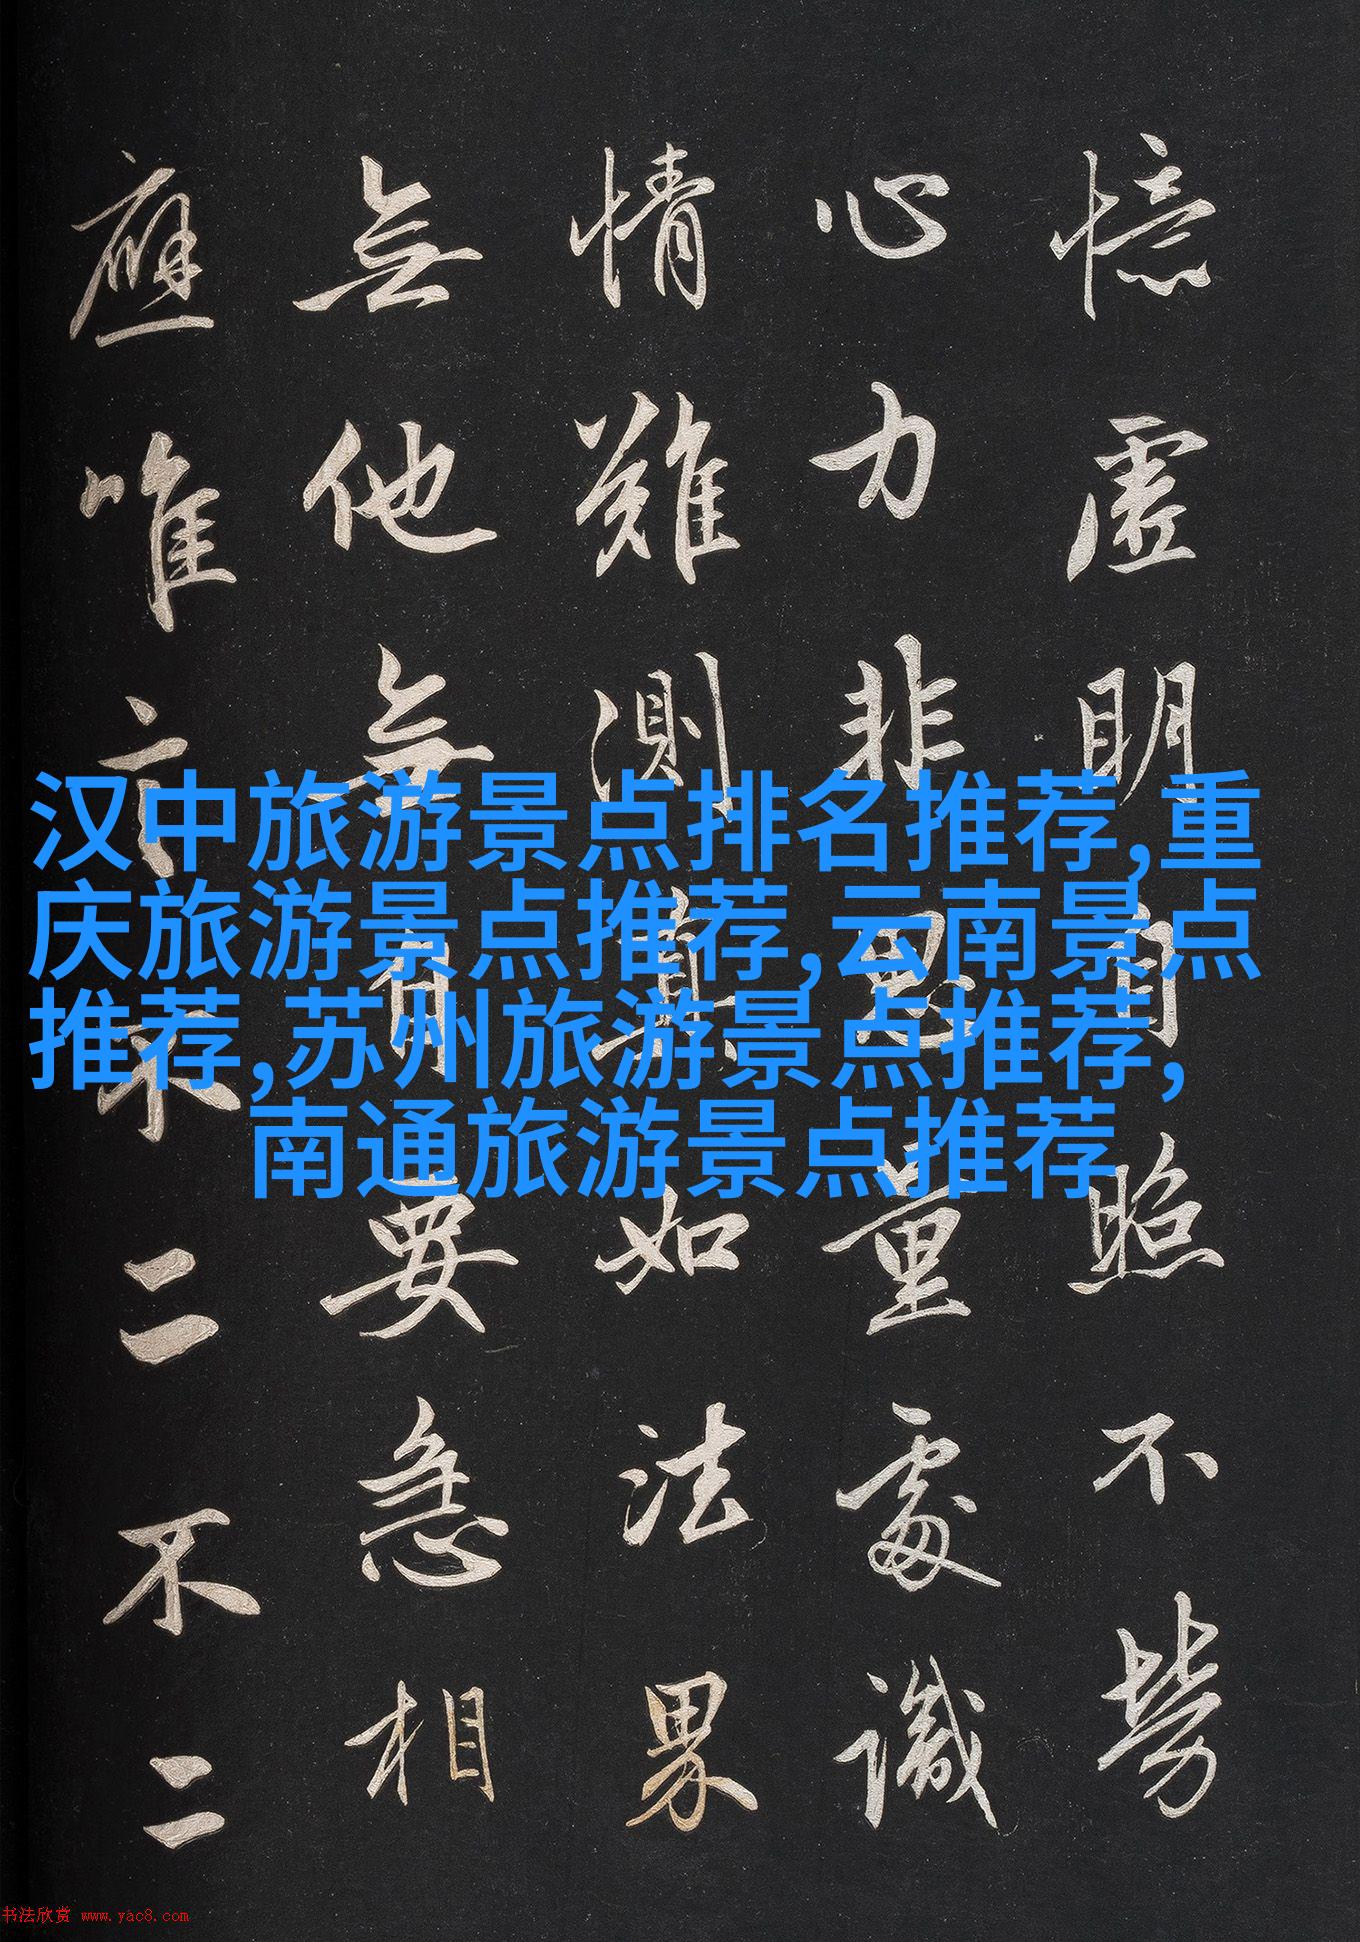 憶虛明自照不勞
心力非思量處識
情難測真如法界
無他無自要急相
應唯言不二不二
汉中旅游景点排名推荐,重
庆旅游景点推荐,云南景点
推荐,苏州旅游景点推荐,
南通旅游景点推荐
书法欣赏 www.yac8.com